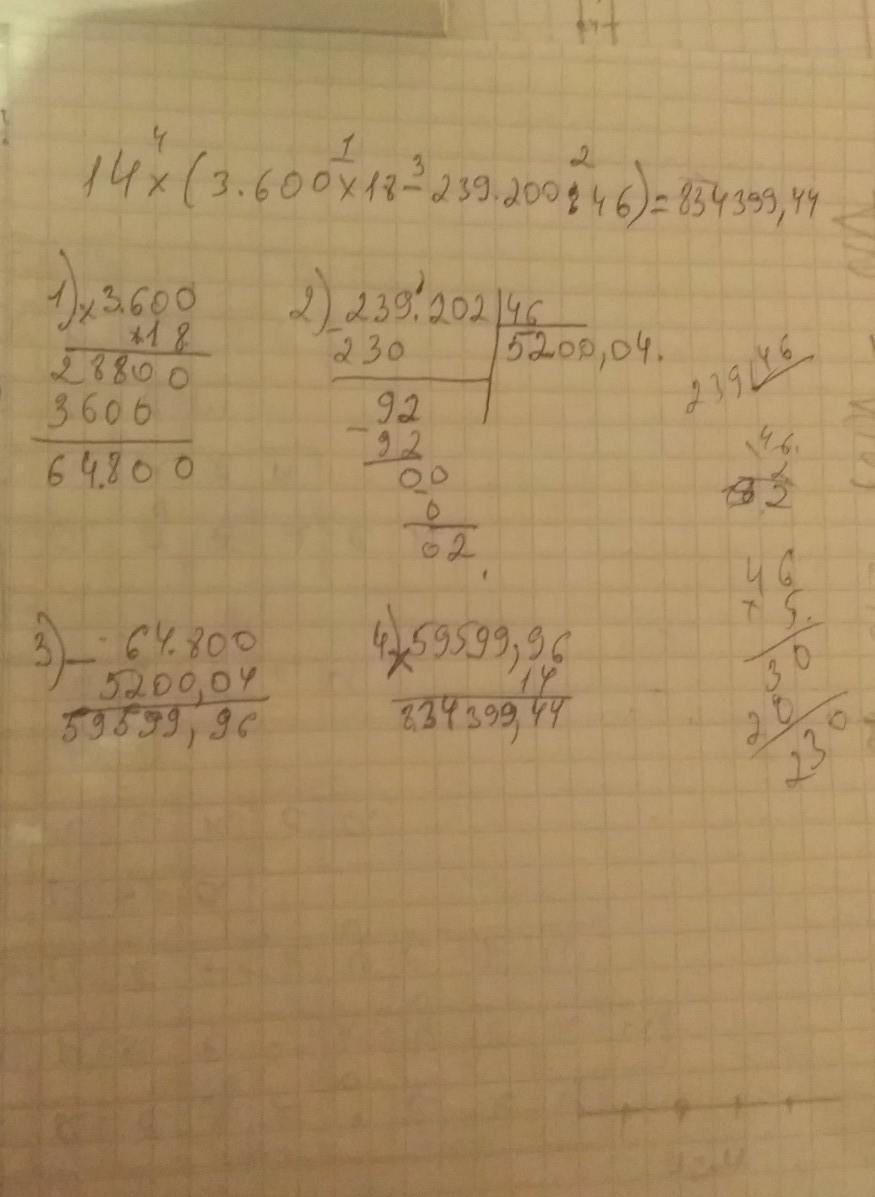 4 1 3 2
14 × (3.600 × 18 - 239.200 : 46) = 834399,44
1) × 3.600
×18
28800
3600
64.800
2) - 239.202 | 46
230 5200,04.
- 92
92
00
- 0
02
239 46
46.
2
92
46
× 5.
30
20
230
3) - 64.800
5200,04
59599,96
4) × 59599,96
14
834399,44